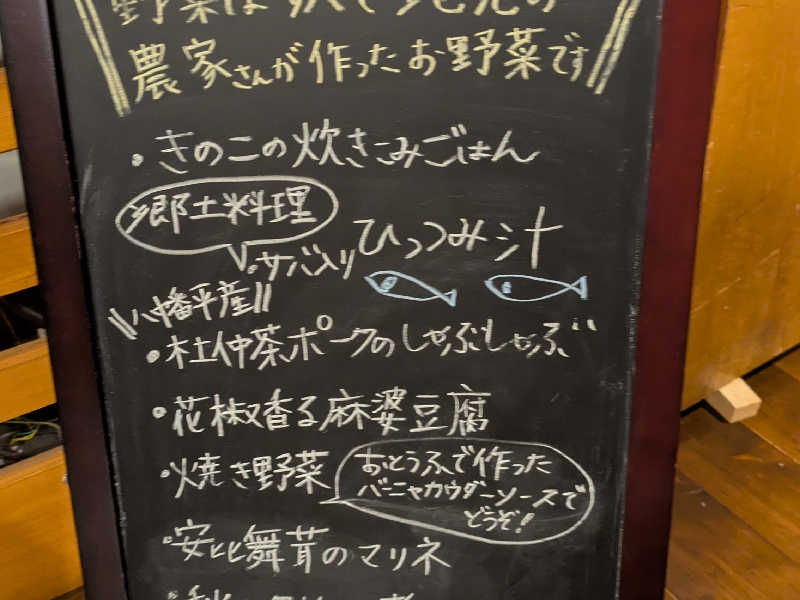 農家さんが作ったお野菜です
・きのこの炊きこみごはん
郷土料理
・サバ入りひっつみ汁
\\八幡平産//
・杜仲茶ポークのしゃぶしゃぶ
・花椒香る麻婆豆腐
・焼き野菜
おとうふで作った
バーニャカウダーソースで
どうぞ!
・安比舞茸のマリネ